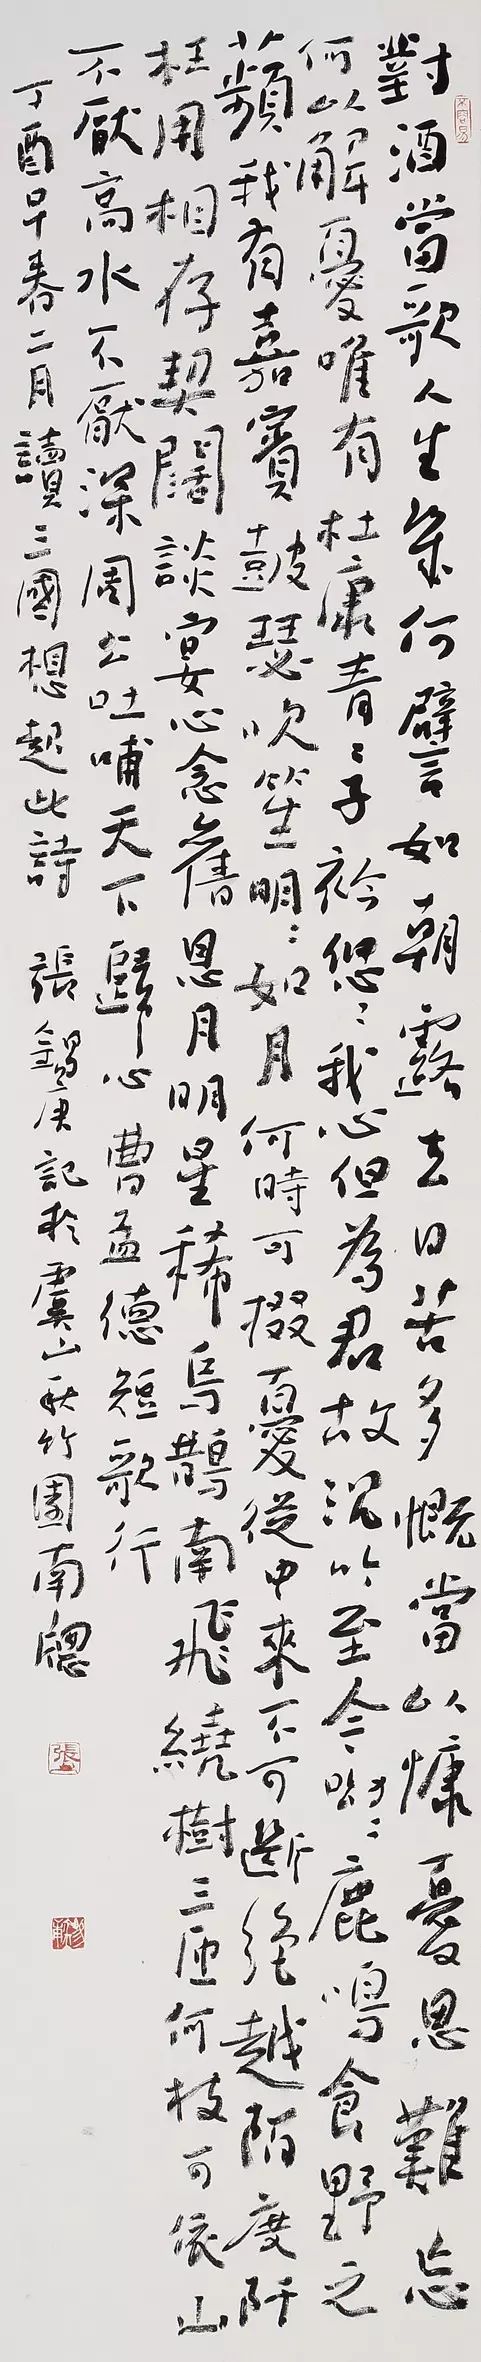 對酒當歌人生幾何譬如朝露去日苦多慨當以慷憂思難忘
何以解憂唯有杜康青〻子衿悠〻我心但為君故沉吟至今呦〻鹿鳴食野之
蘋我有嘉賓鼓瑟吹笙明〻如月何時可掇憂從中來不可斷絕越陌度阡
枉用相存契闊談宴心念舊恩月明星稀烏鵲南飛繞樹三匝何枝可依山
不厭高水不厭深周公吐哺天下歸心曹孟德短歌行
丁酉早春二月讀三國想起此詩 張錫庚記於虞山秋竹園南窗
張